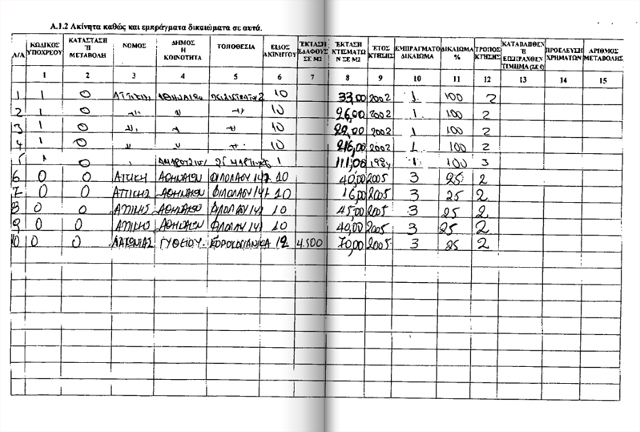 A.1.2 Ακίνητα καθώς και εμπράγματα δικαιώματα σε αυτά.
Α/Α ΚΩΔΙΚΟΣ ΥΠΟΧΡΕΟΥ ΚΑΤΑΣΤΑΣΗ Ή ΜΕΤΑΒΟΛΗ ΝΟΜΟΣ ΔΗΜΟΣ Η ΚΟΙΝΟΤΗΤΑ ΤΟΠΟΘΕΣΙΑ ΕΙΔΟΣ ΑΚΙΝΗΤΟΥ ΕΚΤΑΣΗ ΕΔΑΦΟΥΣ ΣΕ Μ2 ΕΚΤΑΣΗ ΚΤΙΣΜΑΤΩΝ ΣΕ Μ2 ΕΤΟΣ ΚΤΗΣΗΣ ΕΜΠΡΑΓΜΑΤΟ ΔΙΚΑΙΩΜΑ ΔΙΚΑΙΩΜΑ % ΤΡΟΠΟΣ ΚΤΗΣΗΣ ΚΑΤΑΒΛΗΘΕΝ Ή ΕΙΣΠΡΑΧΘΕΝ ΤΙΜΗΜΑ ΠΡΟΕΛΕΥΣΗ ΧΡΗΜΑΤΩΝ ΑΡΙΘΜΟΣ ΜΕΤΑΒΟΛΗΣ
1 2 3 4 5 6 7 8 9 10 11 12 13 14 15
1 1 0 ΑΤΤΙΚΗΣ ΑΘΗΝΑΙΩΝ 10 33,00 2002 1 100 2
2 1 0 " " " 10 26,00 2002 1 100 2
3 1 0 " " " 10 22,00 2002 1 100 2
4 1 0 " " " 10 2002 1 100 2
5 1 1 111,06 1984 1 100 3
6 0 0 ΑΤΤΙΚΗΣ ΑΘΗΝΑΙΩΝ ΦΙΛΟΛΑΟΥ 147 10 40,00 2005 3 25 2
7 0 0 ΑΤΤΙΚΗΣ ΑΘΗΝΑΙΩΝ ΦΙΛΟΛΑΟΥ 147 10 16,00 2005 3 25 2
8 0 0 ΑΤΤΙΚΗΣ ΑΘΗΝΑΙΩΝ ΦΙΛΟΛΑΟΥ 147 10 45,00 2005 3 25 2
9 0 0 ΑΤΤΙΚΗΣ ΑΘΗΝΑΙΩΝ ΦΙΛΟΛΑΟΥ 147 10 40,00 2005 3 25 2
10 0 0 ΛΑΚΩΝΙΑΣ ΓΥΘΕΙΟΥ 12 4.500 70,00 2005 3 25 2